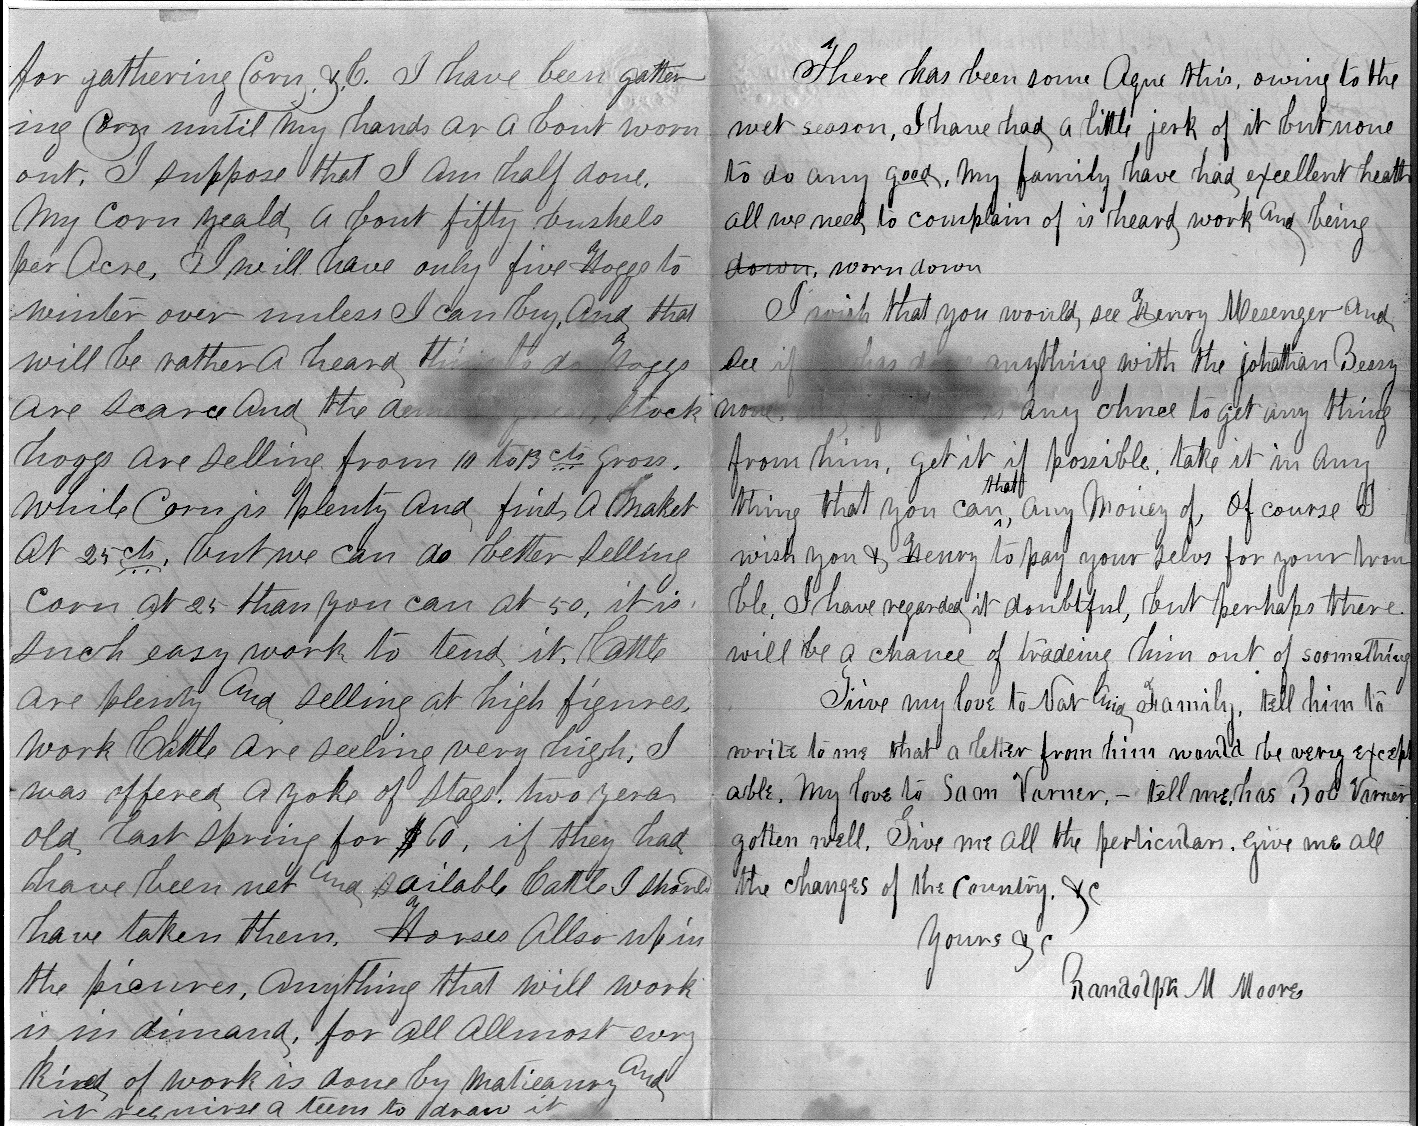 for gathering Corn, &.C. I have been gather
ing Corn until my hands ar a bout worn
out. I suppose that I am half done.
My corn yeald a bout fifty bushels
per Acre, I will have only five Hoggs to
winter over unless I can buy, And that
will be rather a heard thing to do Hoggs
are scarce And the stock
hoggs are selling from 10 to 13 cts gross.
while Corn is plenty and finds a maket
at 25 cts, but we can do better selling
corn at 25 than you can at 50, it is
such easy work to tend it. Cattle
are plenty And selling at high figures,
work Cattle are seeling very high, I
was offered a yoke of stags, two years
old last spring for $60, if they had
have been net And sailable Cattle I should
have taken them. Horses Allso up in
the picures, anything that will work
is in dimand, for all allmost evry
kind of work is done by And
it requirse a teem to draw it
There has been some Ague this, owing to the
wet season, I have had a little jerk of it but none
to do any good, My family have had excellent health
all we need to complain of is heard work And being
down, worn down
I wish that you would see Henry Mesenger And
see if has done anything with the johathan Beesry
none, is any chnce to get any thing
from him, get it if possible, take it in any
thing that you can, that any Money of, Of course I
wish you & Henry to pay your selvs for your trou
ble, I have regarded it doubtful, but perhaps there
will be a chance of tradeing him out of soomething
Give my love to Nat And Family, tell him to
write to me that a letter from him would be very except
able, My love to Sam Varner, – tell me, has Bob Varner
gotten well, Give me all the perticulars. give me all
the changes of the Country, &c
Yours &c
Randolph M Moore